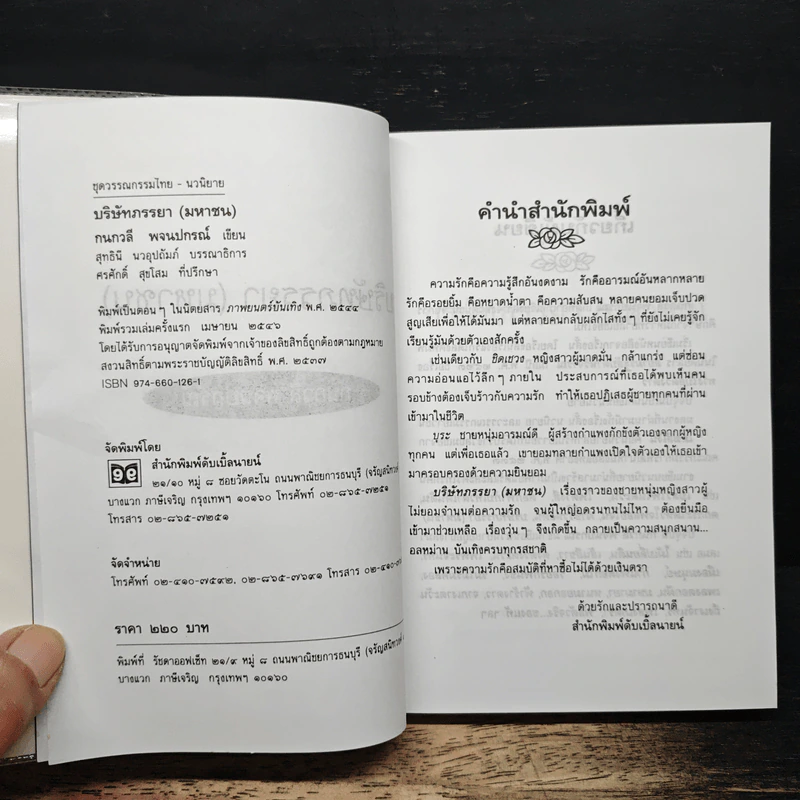 ชุดวรรณกรรมไทย - นวนิยาย
บริษัทภรรยา (มหาชน)
กนกวลี พจนปกรณ์ เขียน
สุทธินี นวอุปถัมภ์ บรรณาธิการ
ศรศักดิ์ สุขโสม ที่ปรึกษา
พิมพ์เป็นตอนๆ ในนิตยสาร ภาพยนตร์บันเทิง พ.ศ. ๒๕๔๔
พิมพ์รวมเล่มครั้งแรก เมษายน ๒๕๔๖
โดยได้รับการอนุญาตจัดพิมพ์จากเจ้าของลิขสิทธิ์ถูกต้องตามกฎหมาย
สงวนสิทธิ์ตามพระราชบัญญัติลิขสิทธิ์ พ.ศ. ๒๕๓๗
ISBN 974-660-126-1
จัดพิมพ์โดย
๑๑ สำนักพิมพ์ดับเบิ้ลนายน์
๒๑/๑๐ หมู่ ๘ ซอยวัดตะโน ถนนพาณิชยการธนบุรี (จรัญสนิทวงศ์
บางแวก ภาษีเจริญ กรุงเทพฯ ๑๐๑๖๐ โทรศัพท์ ๐๒-๘๖๕-๗๒๕๑
โทรสาร ๐๒-๘๖๕-๗๒๕๑
จัดจำหน่าย
โทรศัพท์ ๐๒-๔๑๐-๗๕๙๒, ๐๒-๘๖๕-๗๖๙๑ โทรสาร ๐๒-๔๑๐
ราคา ๒๒๐ บาท
พิมพ์ที่ รัชดาออฟเซ็ท ๒๑/๙ หมู่ ๘ ถนนพาณิชยการธนบุรี (จรัญสนิทวงศ์
บางแวก ภาษีเจริญ กรุงเทพฯ ๑๐๑๖๐
คำนำสำนักพิมพ์
ความรักคือความรู้สึกอันงดงาม รักคืออารมณ์อันหลากหลาย
รักคือรอยยิ้ม คือหยาดน้ำตา คือความสับสน หลายคนยอมเจ็บปวด
สูญเสียเพื่อให้ได้มันมา แต่หลายคนกลับผลักไสทั้งๆ ที่ยังไม่เคยรู้จัก
เรียนรู้มันด้วยตัวเองสักครั้ง
เช่นเดียวกับ ขิดเชวง หญิงสาวผู้มาดมั่น กล้าแกร่ง แต่ซ่อน
ความอ่อนแอไว้ลึกๆ ภายใน ประสบการณ์ที่เธอได้พบเห็นคน
รอบข้างต้องเจ็บร้าวกับความรัก ทำให้เธอปฏิเสธผู้ชายทุกคนที่ผ่าน
เข้ามาในชีวิต
บุระ ชายหนุ่มอารมณ์ดี ผู้สร้างกำแพงกักขังตัวเองจากผู้หญิง
ทุกคน แต่เพื่อเธอแล้ว เขายอมทลายกำแพงเปิดใจตัวเองให้เธอเข้า
มาครอบครองด้วยความยินยอม
บริษัทภรรยา (มหาชน) เรื่องราวของชายหนุ่มหญิงสาวผู้
ไม่ยอมจำนนต่อความรัก จนผู้ใหญ่อดรนทนไม่ไหว ต้องยื่นมือ
เข้ามาช่วยเหลือ เรื่องวุ่นๆ จึงเกิดขึ้น กลายเป็นความสนุกสนาน...
อลหม่าน บันเทิงครบทุกรสชาติ
เพราะความรักคือสมบัติที่หาซื้อไม่ได้ด้วยเงินตรา
ด้วยรักและปรารถนาดี
สำนักพิมพ์ดับเบิ้ลนายน์